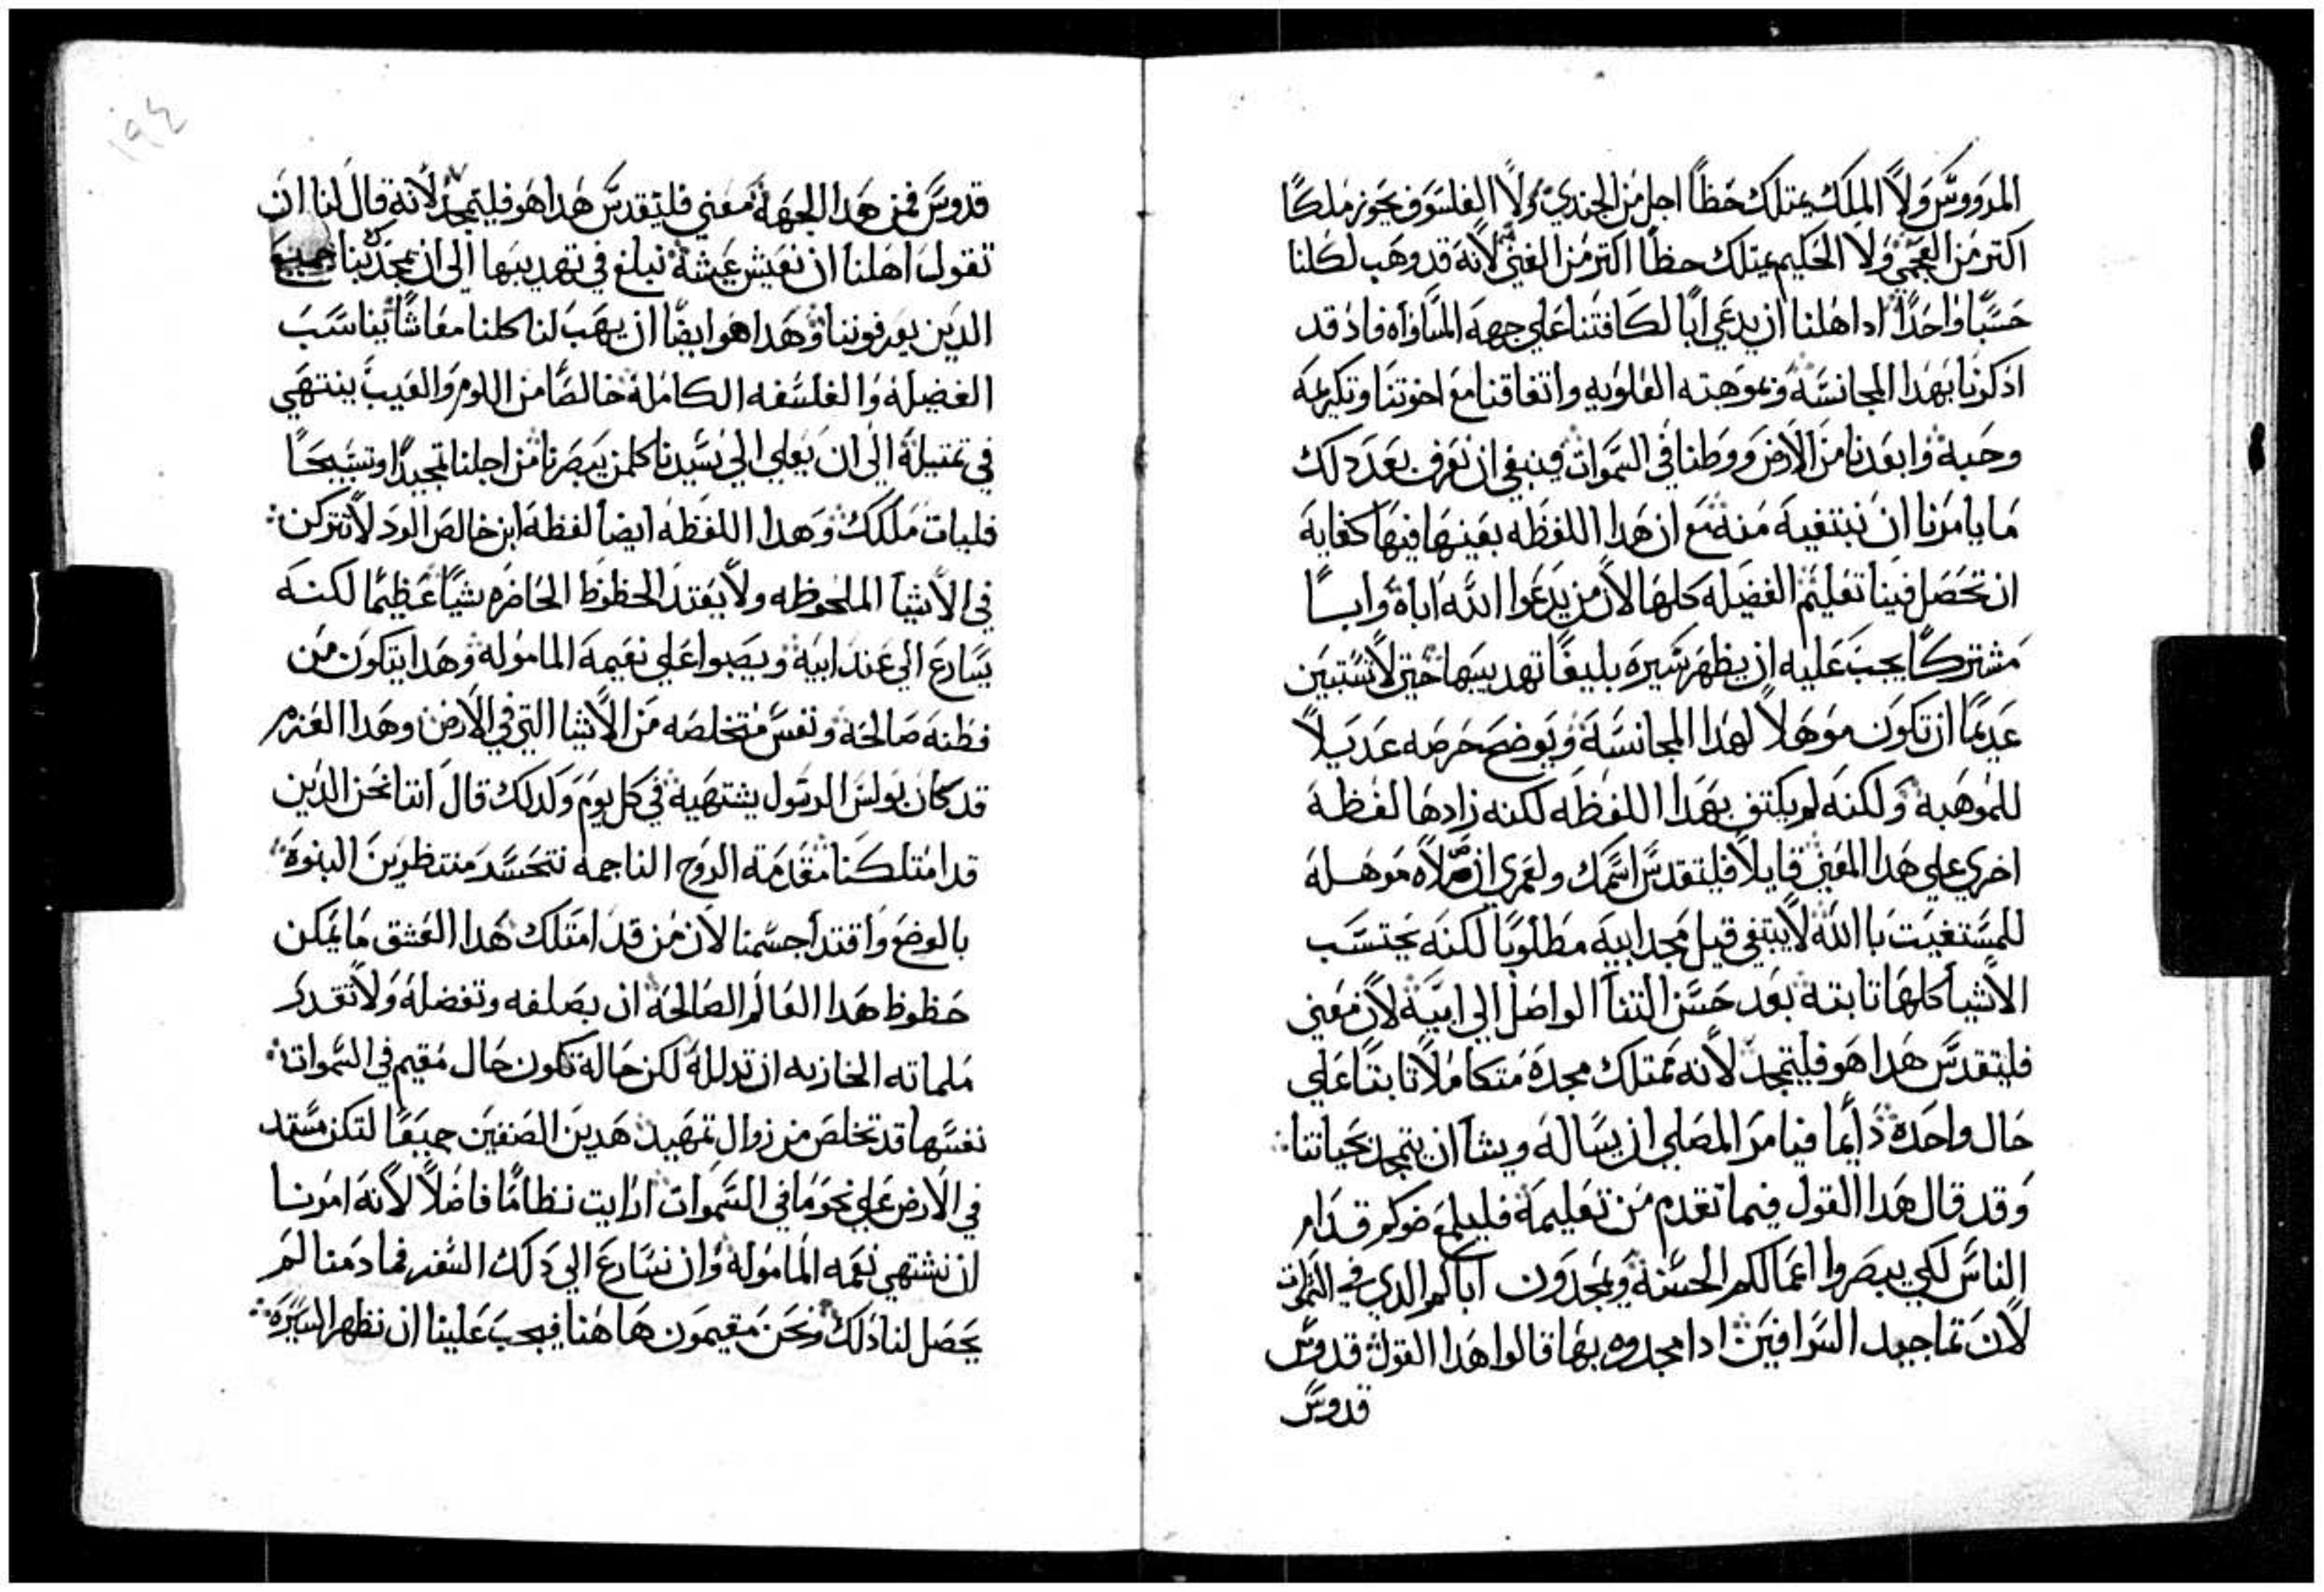 المرووس ولا الملك يمتلك حظا اجل من الجندي ولا الفلسوف يحوز ملكا
اكتر من العجمي ولا الحكيم يمتلك حظا اكتر من الغبي لانه قد وهب لكلنا
حسبا واحدا ادا اهلنا ان يدعي ابا لكافتنا علي جهة المساواه فاد قد
ادكرنا بهدا المجانسة وبموهبته العلويه واتفاقنا مع اخوتنا وتكريمه
وحبه وابعدنا من الارض ووطنا في السموات فينبغي ان نعرف بعد دلك
ما يامرنا ان نبتغيه منه مع ان هدا اللفظه بعينها فيها كفايه
ان تحصل فينا تعليم الفضيله كلها لان من يدعوا الله اباه وابا
مشتركا يجب عليه ان يظهر سيره بليغا تهديبها حتي لا تستبين
عديما ان تكون موهلا لهدا المجانسة ويوضح حرصه عديلا
للموهبه ولكنه لم يكتف بهدا اللفظه لكنه زادها لفظة
اخري علي هدا المعني قايلا فليتقدس اسمك ولعمري ان صلاه موهله
للمستغيت با الله لا يبتغي قبل مجد ابيه مطلوبا لكنه يحتسب
الاشيا كلها تابته بعد حسن التنا الواصل الي ابيه لان معني
فليتقدس هدا هو فليتمجد لانه يمتلك مجده متكاملا تابتا علي
حال واحده دايما فيامر المصلي ان يساله ويشا ان يتمجد بحياتنا
وقد قال هدا القول فيما تقدم من تعليمه فليلمع ضوكم قدام
الناس لكي يبصروا اعمالكم الحسنه ويمجدون اباكم الدي في السموات
لان تماجيد السرافين ادا مجدوه بها قالوا هدا القول قدوس
قدوس
١٩٤
قدوس فمن هدا الجهة معني فليتقدس هدا هو فليتمجد لانه قال لنا ان
تقول اهلنا ان نعيش عيشة نبلغ في تهديبها الي ان يمجدك بنا جميع
الدين يعرفوننا وهدا هو ايضا ان يهب لنا كلنا معاشا يناسب
الفضيله والفلسفه الكامله خالصا من اللوم والعيب ينتهي
في تمتيله الي ان يعلي الي سيدنا كلمن يبصرنا من اجلنا تمجيدا وتسبيحا
فليات ملكك وهدا اللفظه ايضا لفظة ابن خالص الود لا تتركن
في الاشيا الملحوظه ولا يعتد الحظوظ الحاضره شيا عظيما لكنه
يسارع الي عند ابيه ويصبوا علي نعيمه الماموله وهدا يتكون من
فطنه صالحه ونفس متخلصه من الاشيا التي في الارض وهدا العزم
قد كان بولس الرسول يشتهيه في كل يوم ولدلك قال اننا نحن الدين
قد امتلكنا مقدمة الروح الناجمه نتحسد منتظرين البنوة
بالوضع واقتدا جسمنا لان من قد امتلك هدا العشق ما يمكن
حظوظ هدا العالم الصالحة ان يصلفه وتفضله ولا تقدر
ملماته الخازيه ان تدلله لكن حاله تكون حال مقيم في السموات
نفسها قد تخلص من زوال تمهيد هدين الصنفين جميعا لتكن مشيتك
في الارض علي نحو ما في السموات ارايت نظاما فاضلا لانه امرنا
ان نشتهي نعمه الماموله وان نسارع الي دلك السفر فما دمنا لم
يحصل لنا دلك ونحن مقيمون هاهنا فيجب علينا ان نظهر السيرة